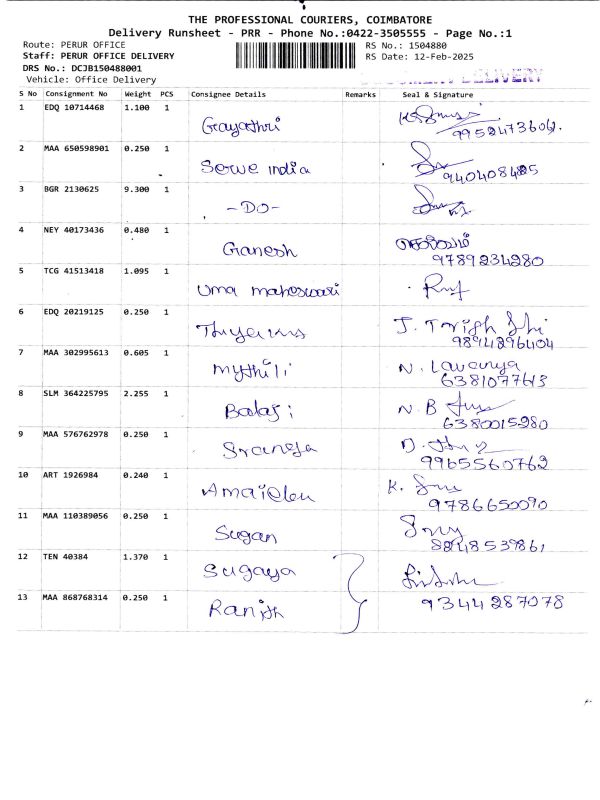 THE PROFESSIONAL COURIERS, COIMBATORE
Delivery Runsheet - PRR - Phone No.:0422-3505555 - Page No.:1
Route: PERUR OFFICE
RS No.: 1504880
Staff: PERUR OFFICE DELIVERY
RS Date: 12-Feb-2025
DRS No.: DCJB150488001
Vehicle: Office Delivery
DELIVERY
S No Consignment No Weight PCS Consignee Details Remarks Seal & Signature
1 EDQ 10714468 1.100 1
Gayathri 9952473606.
2 MAA 650598901 0.250 1
Serve india
3 BGR 2130625 9.300 1
-DO-
4 NEY 40173436 0.480 1
Ganesh 9789234280
5 TCG 41513418 1.095 1
Uma maheswari
6 EDQ 20219125 0.250 1
9894296404
7 MAA 302995613 0.605 1
Mythili N. Lavanya
6381077613
8 SLM 364225795 2.255 1
Balaji N. B
6380015280
9 MAA 576762978 0.250 1
9965560762
10 ART 1926984 0.240 1
K.
9786650090
11 MAA 110389056 0.250 1
Sugan
8248539861
12 TEN 40384 1.370 1
Sugaya
13 MAA 868768314 0.250 1
Ranjith 9344287078